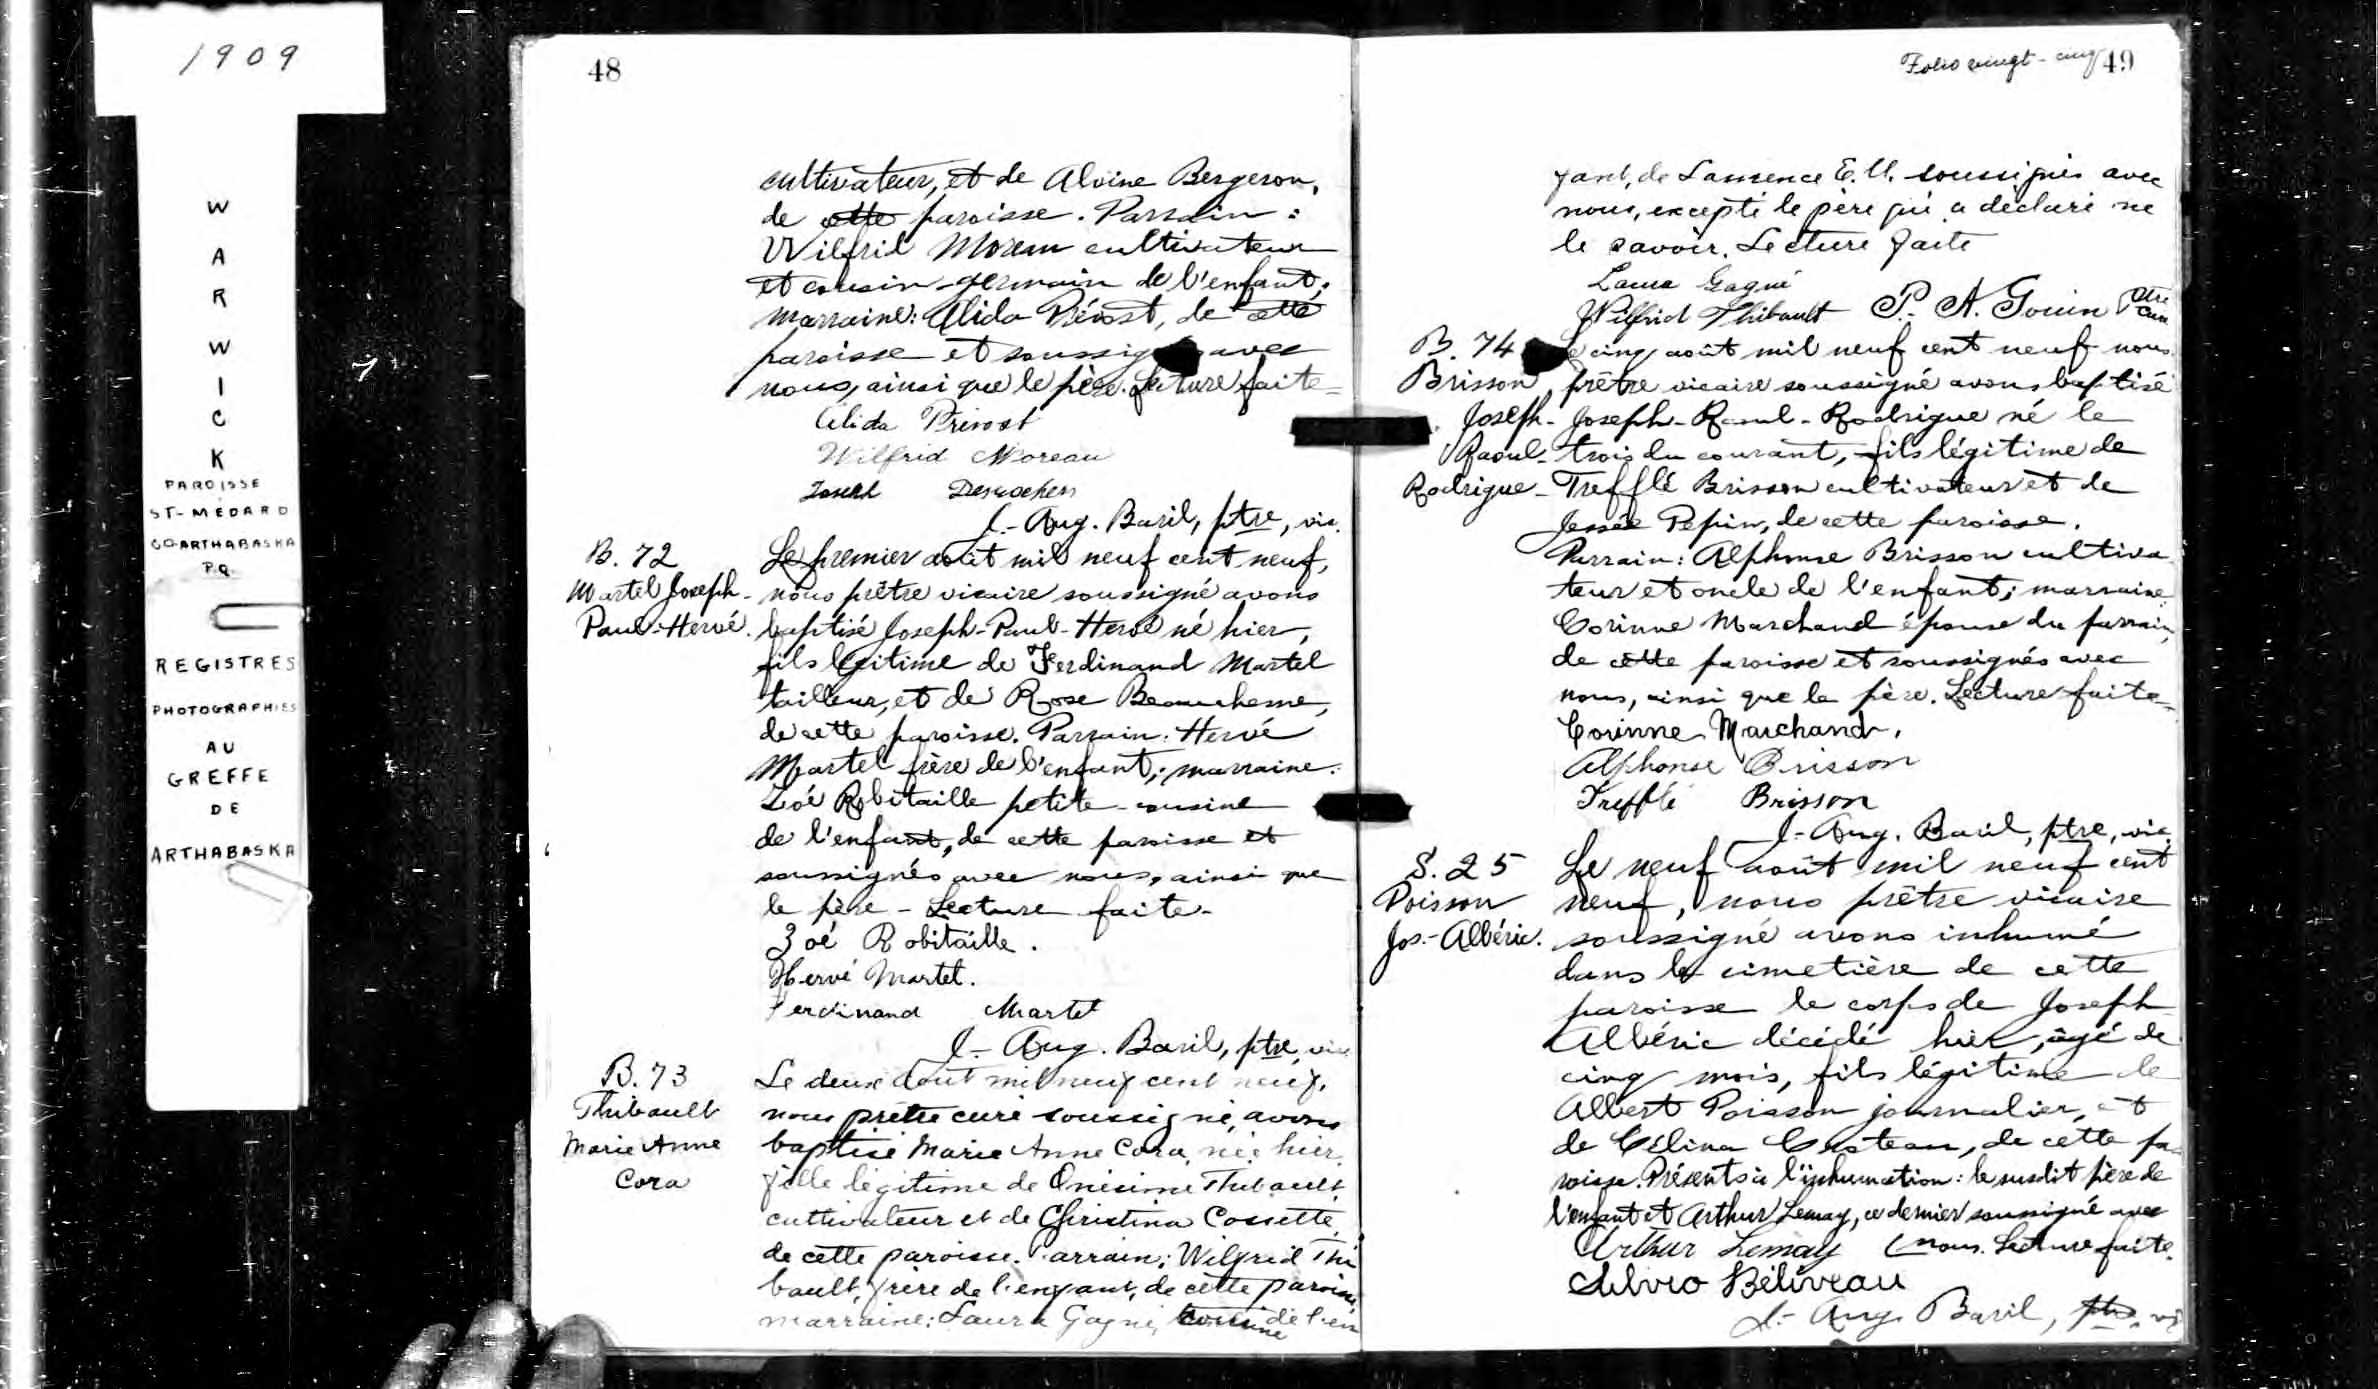 1909
W
A
R
W
I
C
K
PAROISSE
ST-MÉDARD
CO-ARTHABASKA
P.Q.
REGISTRES
PHOTOGRAPHIES
AU
GREFFE
DE
ARTHABASKA
48
cultivateur, et de Alvine Bergeron,
de cette paroisse. Parrain :
Wilfrid Moreau cultivateur
et cousin-germain de l'enfant;
marraine: Alida Prévost, de cette
paroisse et avec
nous, ainsi que le père. Lecture faite-
Alida Prévost
Wilfrid Moreau
Joseph Desrochers
J.-Aug. Baril, ptre, vic.
B. 72
Martel Joseph-
Paul-Hervé.
Le premier août mil neuf cent neuf,
nous prêtre vicaire soussigné avons
baptisé Joseph-Paul-Hervé né hier,
fils légitime de Ferdinand Martel
tailleur, et de Rose Beauchesne,
de cette paroisse. Parrain: Hervé
Martel frère de l'enfant; marraine:
Zoé Robitaille petite-cousine
de l'enfant, de cette paroisse et
soussignés avec nous, ainsi que
le père - Lecture faite-
Zoé Robitaille.
Hervé Martel.
Ferdinand Martel
J.- Aug. Baril, ptre, vic
B. 73
Thibault
Marie Anne
Cora
Le deux août mil neuf cent neuf,
nous prêtre curé soussigné, avons
baptisé Marie Anne Cora, née hier,
fille légitime de Onésime Thibault
cultivateur et de Christina Cossette
de cette paroisse. Parrain; Wilfrid Thi
bault, frère de l'enfant, de cette paroisse,
marraine: Laura Gagné, cousine de l'en
Folio vingt-cinq 49
fant, de Lawrence E.U. soussignés avec
nous, excepté le père qui a déclaré ne
le savoir. Lecture faite
Laura Gagné
Wilfrid Thibault P. A. Gouin Ptre
Curé
B. 74
Brisson
Joseph-
Raoul-
Rodrigue-
Le cinq août mil neuf cent neuf nous
prêtre vicaire soussigné avons baptisé
Joseph-Raoul-Rodrigue né le
trois du courant, fils légitime de
Trefflé Brisson cultivateur et de
Jessée Pepin, de cette paroisse.
Parrain: Alphonse Brisson cultiva
teur et oncle de l'enfant; marraine:
Corinne Marchand épouse du parrain,
de cette paroisse et soussignés avec
nous, ainsi que le père. Lecture faite-
Corinne Marchand.
Alphonse Brisson
Trefflé Brisson
J.-Aug. Baril, ptre, vic.
S. 25
Poisson
Jos.-Albéric.
Le neuf août mil neuf cent
neuf, nous prêtre vicaire
soussigné avons inhumé
dans le cimetière de cette
paroisse le corps de Joseph
Albéric décédé hier, âgé de
cinq mois, fils légitime de
Albert Poisson journalier, et
de Célina Custeau, de cette pa
roisse. Présents à l'inhumation: le susdit père de
l'enfant et Arthur Lemay, ce dernier soussigné avec
Arthur Lemay (nous. Lecture faite.
Silvio Béliveau
J.- Aug. Baril, ptre, vic